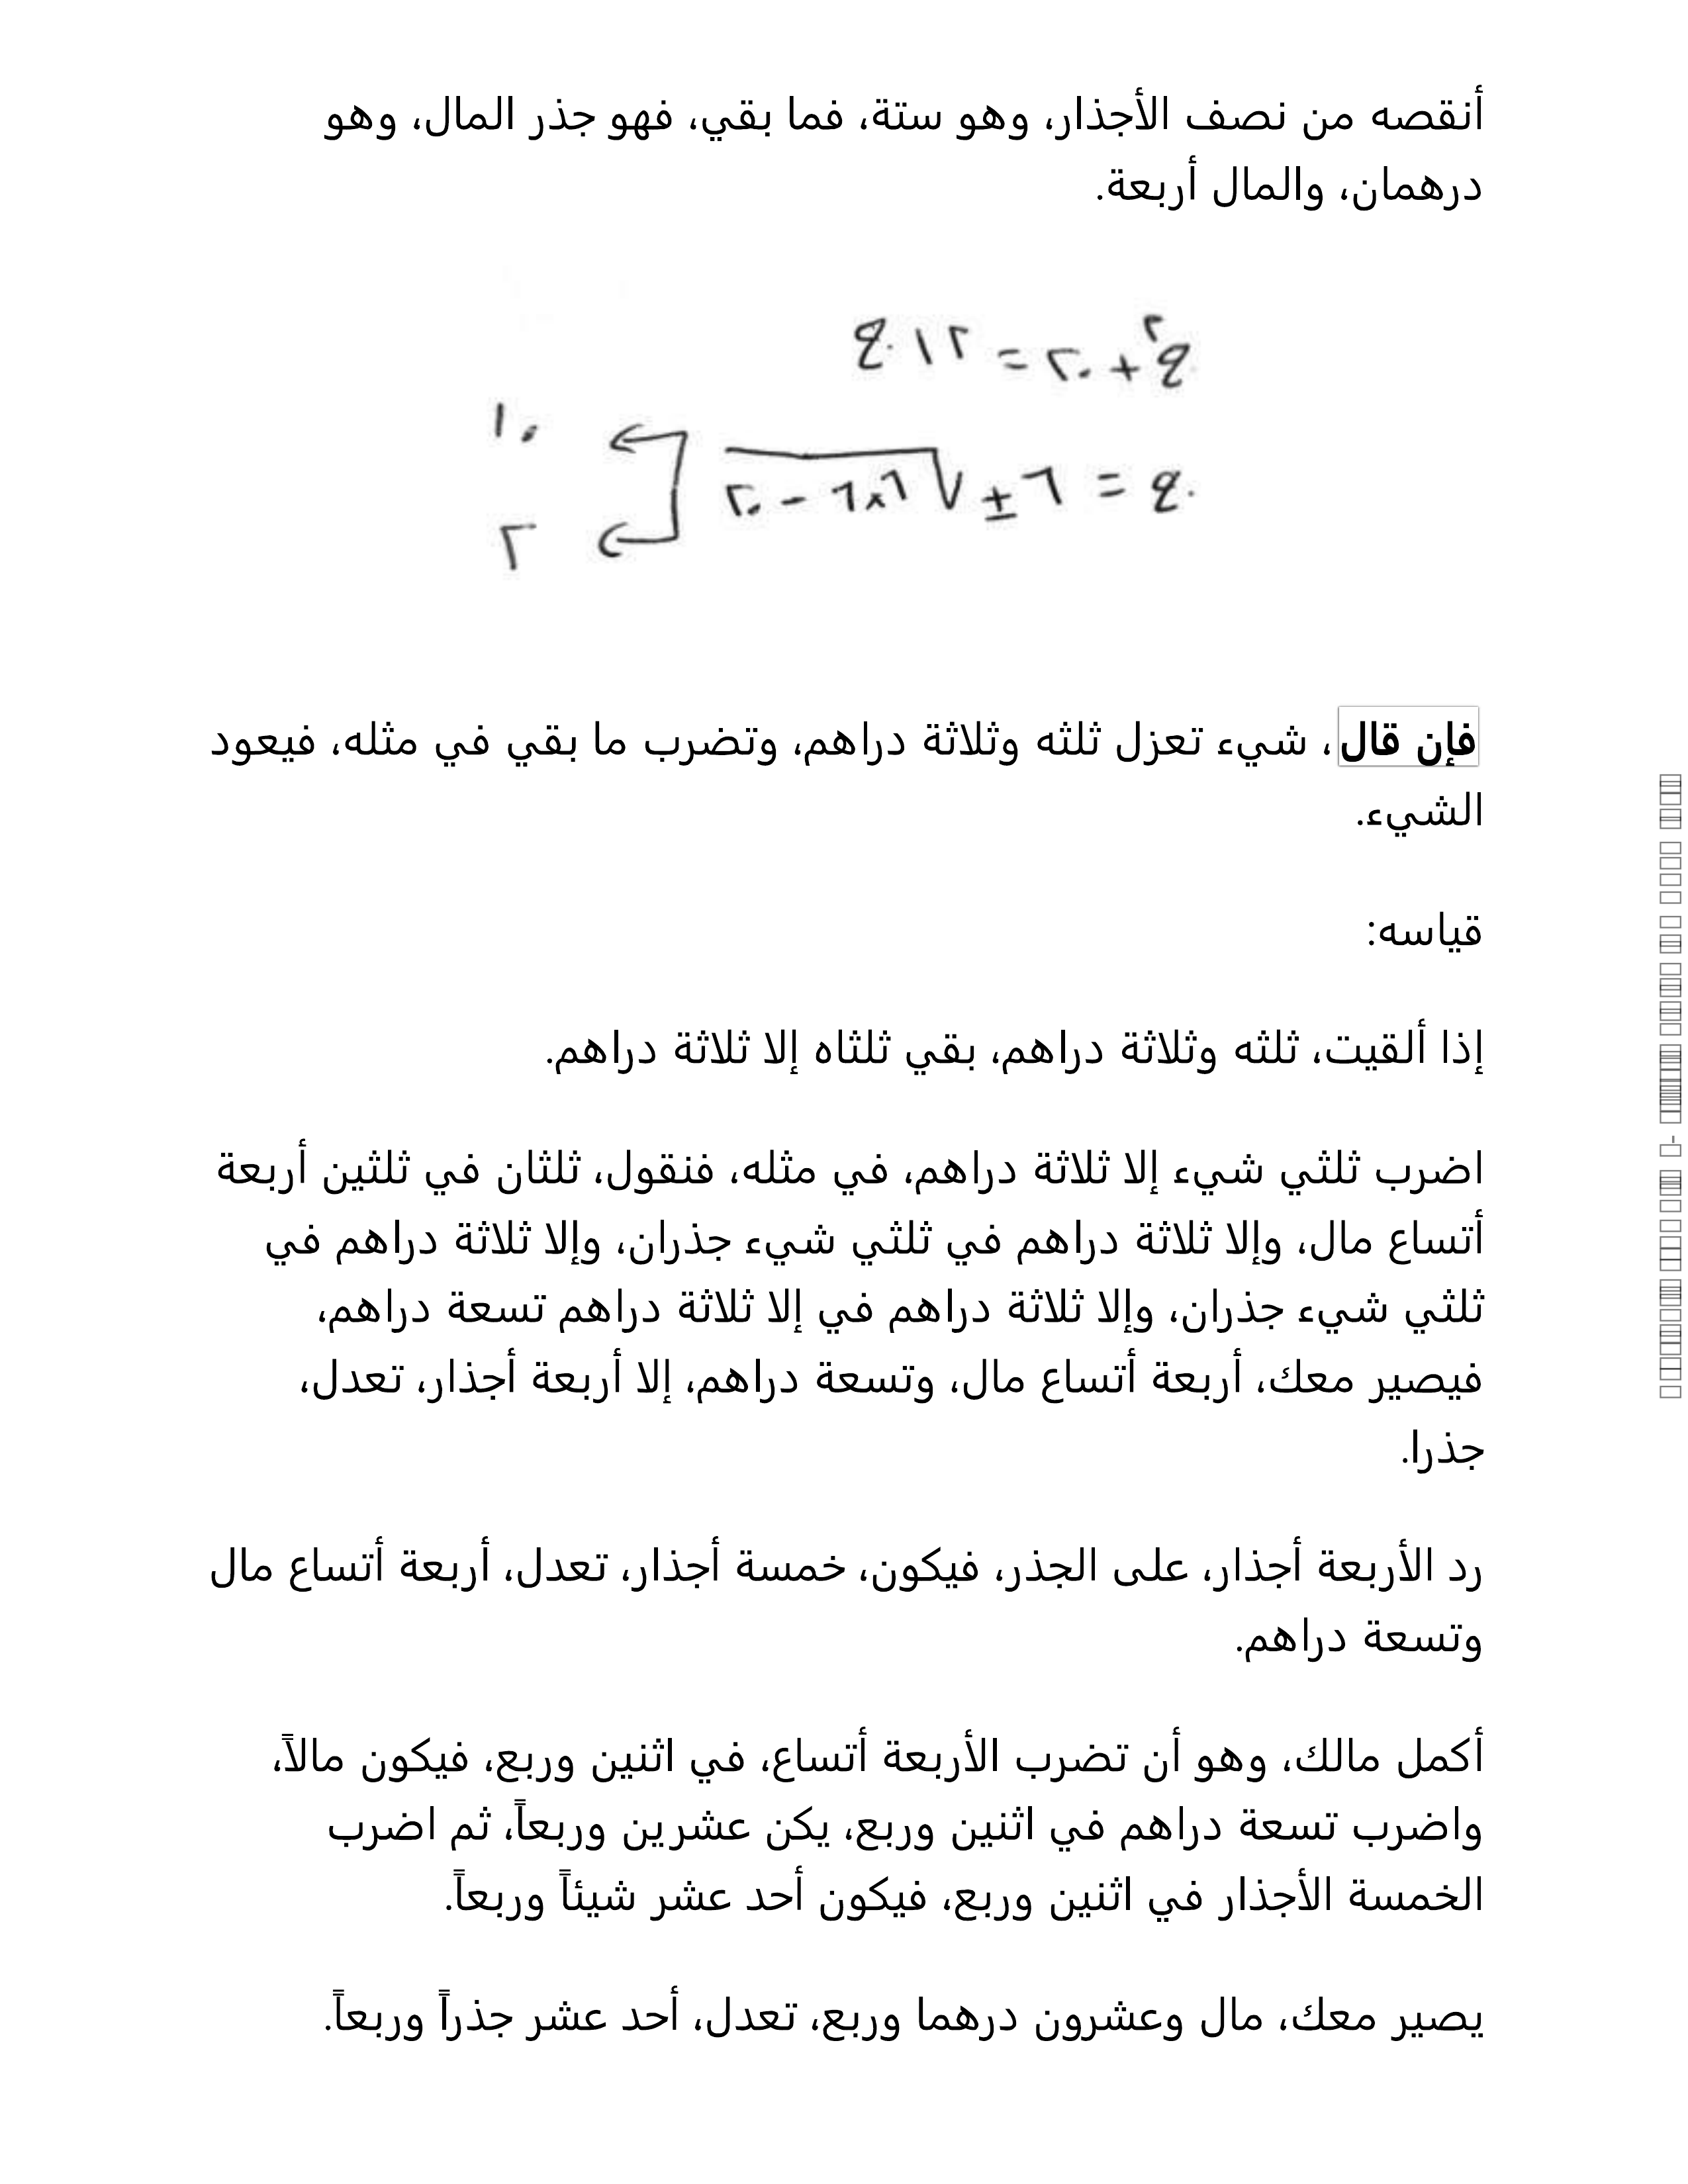 أنقصه من نصف الأجذار، وهو ستة، فما بقي، فهو جذر المال، وهو
درهمان، والمال أربعة.
ج٢ + ٢٠ = ١٢ ج
ج = ٦ ± √٦×٦ - ٢٠
١٠
٢
فإن قال، شيء تعزل ثلثه وثلاثة دراهم، وتضرب ما بقي في مثله، فيعود
الشيء.
قياسه:
إذا ألقيت، ثلثه وثلاثة دراهم، بقي ثلثاه إلا ثلاثة دراهم.
اضرب ثلثي شيء إلا ثلاثة دراهم، في مثله، فنقول، ثلثان في ثلثين أربعة
أتساع مال، وإلا ثلاثة دراهم في ثلثي شيء جذران، وإلا ثلاثة دراهم في
ثلثي شيء جذران، وإلا ثلاثة دراهم في إلا ثلاثة دراهم تسعة دراهم،
فيصير معك، أربعة أتساع مال، وتسعة دراهم، إلا أربعة أجذار، تعدل،
جذرا.
رد الأربعة أجذار، على الجذر، فيكون، خمسة أجذار، تعدل، أربعة أتساع مال
وتسعة دراهم.
أكمل مالك، وهو أن تضرب الأربعة أتساع، في اثنين وربع، فيكون مالاً،
واضرب تسعة دراهم في اثنين وربع، يكن عشرين وربعاً، ثم اضرب
الخمسة الأجذار في اثنين وربع، فيكون أحد عشر شيئاً وربعاً.
يصير معك، مال وعشرون درهما وربع، تعدل، أحد عشر جذراً وربعاً.